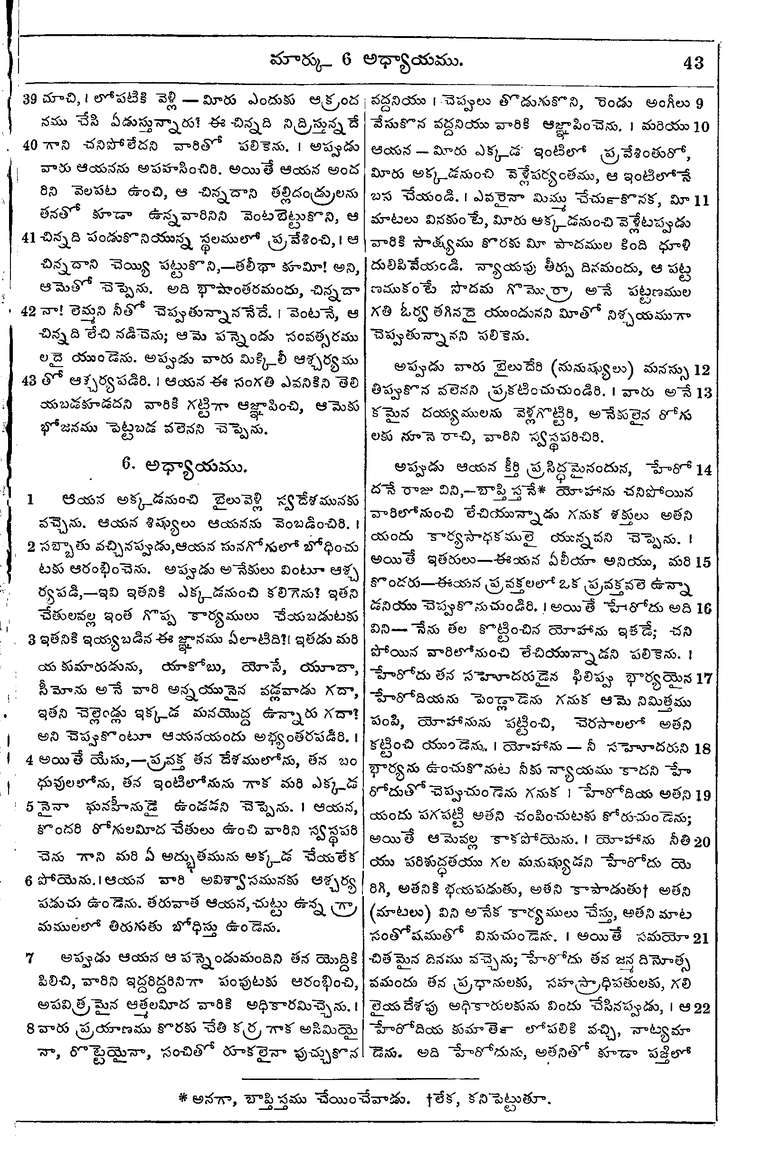 మార్కు 6 అధ్యాయము. 43
39 చూచి, । లోపటికి వెళ్లి — మీరు ఎందుకు ఆక్రంద
నము చేసి ఏడుస్తున్నారు? ఈ చిన్నది నిద్రిస్తున్నదే
40 గాని చనిపోలేదని వారితో పలికెను. । అప్పుడు
వారు ఆయనను అపహసించిరి. అయితే ఆయన అంద
రిని వెలపట ఉంచి, ఆ చిన్నదాని తల్లిదండ్రులను
తనతో కూడా ఉన్నవారినిని వెంటబెట్టుకొని, ఆ
41 చిన్నది పండుకొనియున్న స్థలములో ప్రవేశించి, । ఆ
చిన్నదాని చెయ్యి పట్టుకొని,—తలీథా కూమీ! అని,
ఆమెతో చెప్పెను. అది భాషాంతరమందు, చిన్నదా
42 నా! లెమ్మని నీతో చెప్పుతున్నాననేదే. । వెంటనే, ఆ
చిన్నది లేచి నడిచెను; ఆమె పన్నెండు సంవత్సరము
లదై యుండెను. అప్పుడు వారు మిక్కిలీ ఆశ్చర్యము
43 తో ఆశ్చర్యపడిరి. । ఆయన ఈ సంగతి ఎవనికిని తెలి
యబడకూడదని వారికి గట్టిగా ఆజ్ఞాపించి, ఆమెకు
భోజనము పెట్టబడ వలెనని చెప్పెను.
6. అధ్యాయము.
1 ఆయన అక్కడనుంచి బైలువెళ్లి స్వదేశమునకు
వచ్చెను. ఆయన శిష్యులు ఆయనను వెంబడించిరి. ।
2 సబ్బాతు వచ్చినప్పుడు,ఆయన సునగోగులో బోధించు
టకు ఆరంభించెను. అప్పుడు అనేకులు వింటూ ఆశ్చ
ర్యపడి,—ఇవి ఇతనికి ఎక్కడనుంచి కలిగెను? ఇతని
చేతులవల్ల ఇంత గొప్ప కార్యములు చేయబడుటకు
3 ఇతనికి ఇయ్యబడిన ఈ జ్ఞానము ఏలాటిది?। ఇతడు మరి
య కుమారుడును, యాకోబు, యోసే, యూదా,
సీమోను అనే వారి అన్నయునైన వడ్లవాడు గదా,
ఇతని చెల్లెండ్లు ఇక్కడ మనయొద్ద ఉన్నారు గదా?
అని చెప్పుకొంటూ ఆయనయందు అభ్యంతరపడిరి. ।
4 అయితే యేసు,—ప్రవక్త తన దేశములోను, తన బం
ధువులలోను, తన ఇంటిలోనును గాక మరి ఎక్కడ
5 నైనా ఘనహీనుడై ఉండడని చెప్పెను. । ఆయన,
కొందరి రోగులమీద చేతులు ఉంచి వారిని స్వస్థపరి
చెను గాని మరి ఏ అద్భుతమును అక్కడ చేయలేక
6 పోయెను.।ఆయన వారి అవిశ్వాసమునకు ఆశ్చర్య
పడుచు ఉండెను. తరువాత ఆయన,చుట్టు ఉన్న గ్రా
మములలో తిరుగుతు బోధిస్తు ఉండెను.
7 అప్పుడు ఆయన ఆ పన్నెండుమందిని తన యొద్దికి
పిలిచి, వారిని ఇద్దరిద్దరినిగా పంపుటకు ఆరంభించి,
అపవిత్రమైన ఆత్మలమీద వారికి అధికారమిచ్చెను. ।
8 వారు ప్రయాణము కొరకు చేతి కర్ర గాక అసిమియై
నా, రొట్టెయైనా, సంచితో రూకలైనా పుచ్చుకొన
వద్దనియు । చెప్పులు తొడుగుకొని, రెండు అంగీలు 9
వేసుకొన వద్దనియు వారికి ఆజ్ఞాపించెను. । మరియు 10
ఆయన — మీరు ఎక్కడ ఇంటిలో ప్రవేశింతురో,
మీరు అక్కడనుంచి వెళ్లేపర్యంతము, ఆ ఇంటిలోనే
బస చేయండి. । ఎవరైనా మిమ్ము చేర్చుకొనక, మీ 11
మాటలు వినకుంటే, మీరు అక్కడనుంచి వెళ్లేటప్పుడు
వారికి సాక్ష్యము కొరకు మీ పాదముల కింది ధూళి
దులిపివేయండి. న్యాయపు తీర్పు దినమందు, ఆ పట్ట
ణముకంటే సొదమ గొమొర్రా అనే పట్టణముల
గతి ఓర్వ తగినదై యుండునని మీతో నిశ్చయముగా
చెప్పుతున్నానని పలికెను.
అప్పుడు వారు బైలుదేరి (మనుష్యులు) మనస్సు 12
తిప్పుకొన వలెనని ప్రకటించుచుండిరి. । వారు అనే 13
కమైన దయ్యములను వెళ్లగొట్టిరి, అనేకులైన రోగు
లకు నూనె రాచి, వారిని స్వస్థపరిచిరి.
అప్పుడు ఆయన కీర్తి ప్రసిద్ధమైనందున, హేరో 14
దనే రాజు విని,—బాప్తిస్తనే* యోహాను చనిపోయిన
వారిలోనుంచి లేచియున్నాడు గనుక శక్తులు అతని
యందు కార్యసాధకములై యున్నవని చెప్పెను. ।
అయితే ఇతరులు—ఈయన ఏలీయా అనియు, మరి 15
కొందరు—ఈయన ప్రవక్తలలో ఒక ప్రవక్తవలె ఉన్నా
డనియు చెప్పుకొనుచుండిరి. । అయితే హేరోదు అది 16
విని— నేను తల కొట్టించిన యోహాను ఇకడే; చని
పోయిన వారిలోనుంచి లేచియున్నాడని పలికెను. ।
హేరోదు తన సహూదరుడైన ఫిలిప్పు భార్యయైన 17
హేరోదియను పెండ్లాడెను గనుక ఆమె నిమిత్తము
పంపి, యోహానును పట్టించి, చెరసాలలో అతని
కట్టించి యుండెను. । యోహాను — నీ సహూదరుని 18
భార్యను ఉంచుకొనుట నీకు న్యాయము కాదని హే
రోదుతో చెప్పుచుండెను గనుక । హేరోదియ అతని 19
యందు పగపట్టి అతని చంపించుటకు కోరుచుండెను;
అయితే ఆమెవల్ల కాకపోయెను. । యోహాను నీతి 20
యు పరిశుద్ధతయు గల మనుష్యుడని హేరోదు యె
రిగి, అతనికి భయపడుతు, అతని కాపాడుతు† అతని
(మాటలు) విని అనేక కార్యములు చేస్తు, అతని మాట
సంతోషముతో వినుచుండెను. । అయితే సమయో 21
చితమైన దినము వచ్చెను; హేరోదు తన జన్మ దినోత్స
వమందు తన ప్రధానులకు, సహస్రాధిపతులకు, గలి
లైయదేశపు అధికారులకును విందు చేసినప్పుడు, । ఆ 22
హేరోదియ కుమార్తె లోపలికి వచ్చి, నాట్యమా
డెను. అది హేరోదును, అతనితో కూడా పజ్తిలో
* అనగా, బాప్తిస్తము చేయించేవాడు. †లేక, కనిపెట్టుతూ.